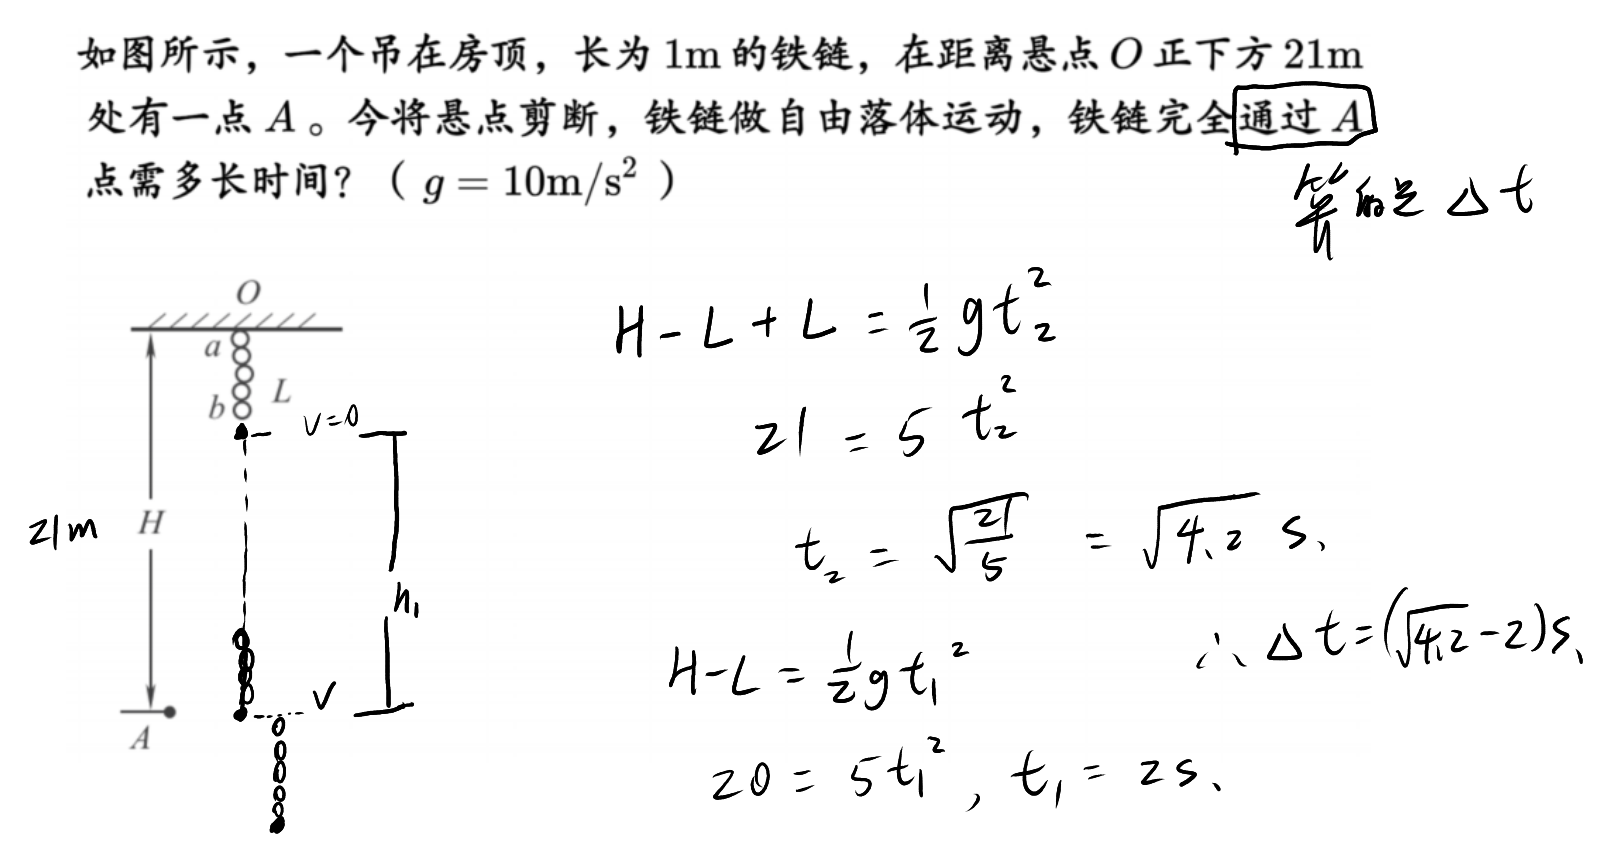 如图所示，一个吊在房顶，长为 1m 的铁链，在距离悬点 O 正下方 21m
处有一点 A 。今将悬点剪断，铁链做自由落体运动，铁链完全通过 A
点需多长时间？（ g = 10m/s² ）
算的是 Δt
O
a
L
b
v=0
H
21m
h₁
v
A
H-L+L = ½gt₂²
21 = 5 t₂²
t₂ = √(21/5) = √4.2 s、
H-L = ½gt₁²
∴ Δt=(√4.2-2)s、
20 = 5t₁² , t₁ = 2s、